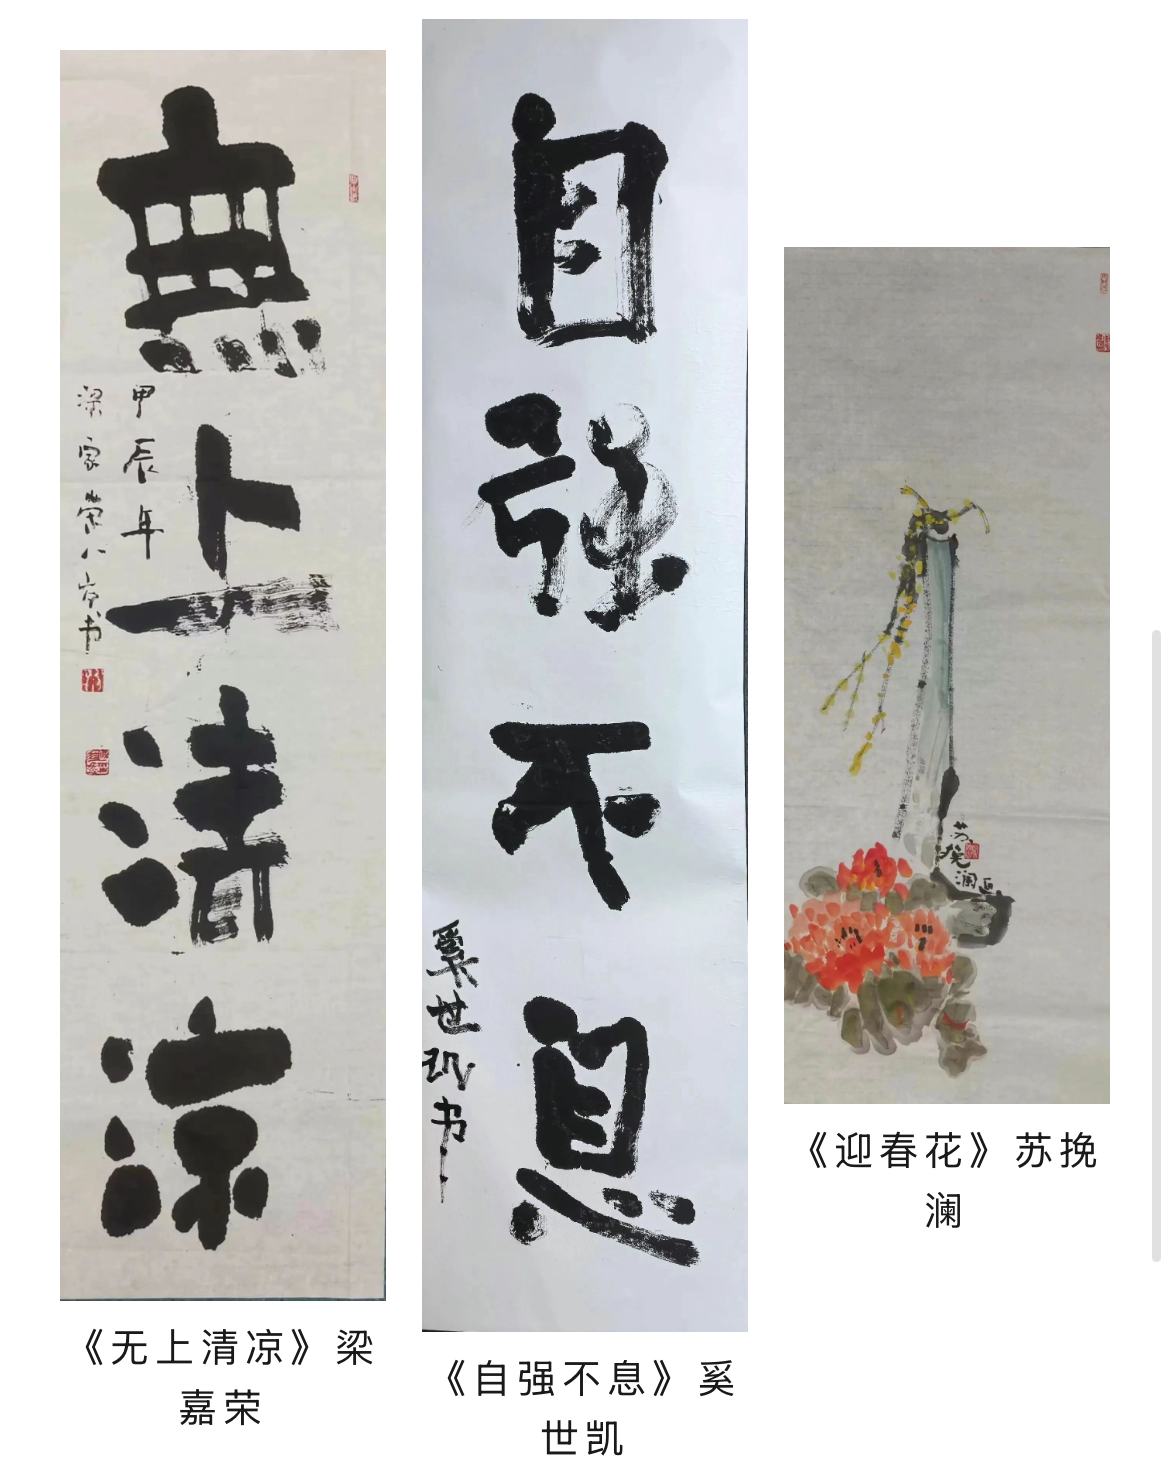 無
上
清
凉
甲辰年
梁家荣八岁书
《无上清凉》梁
嘉荣
自
强
不
息
奚世玑书
《自强不息》奚
世凯
苏挽澜画
《迎春花》苏挽
澜